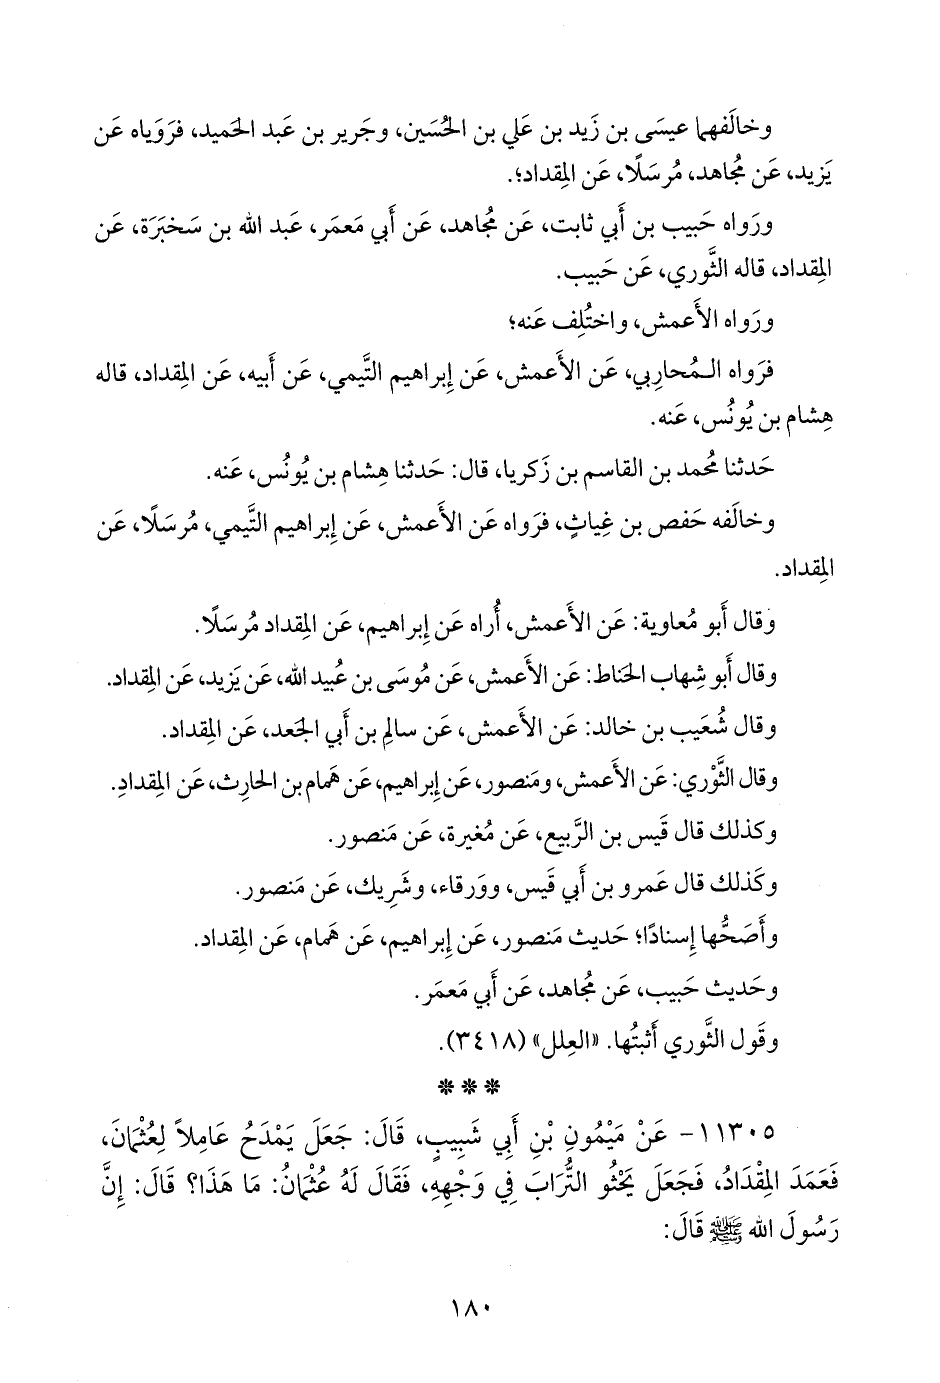 وخالَفهما عيسَى بن زَيد بن عَلي بن الحُسَين، وجَرير بن عَبد الحَميد، فرَوَياه عَن
يَزيد، عَن مُجاهد، مُرسَلًا، عَن المِقداد؛.
ورَواه حَبيب بن أَبي ثابت، عَن مُجاهد، عَن أَبي مَعمَر، عَبد الله بن سَخبَرَة، عَن
المِقداد، قاله الثَّوري، عَن حَبيب.
ورَواه الأَعمش، واختُلِف عَنه؛
فرَواه المُحارِبي، عَن الأَعمش، عَن إِبراهيم التَّيمي، عَن أَبيه، عَن المِقداد، قاله
هِشام بن يُونُس، عَنه.
حَدثنا مُحمد بن القاسم بن زَكريا، قال: حَدثنا هِشام بن يُونُس، عَنه.
وخالَفه حَفص بن غِياثٍ، فرَواه عَن الأَعمش، عَن إِبراهيم التَّيمي، مُرسَلًا، عَن
المِقداد.
وَقال أَبو مُعاوية: عَن الأَعمش، أُراه عَن إِبراهيم، عَن المِقداد مُرسَلًا.
وقال أَبو شِهاب الحَناط: عَن الأَعمش، عَن مُوسَى بن عُبيد الله، عَن يَزيد، عَن المِقداد.
وقال شُعَيب بن خالد: عَن الأَعمش، عَن سالم بن أَبي الجَعد، عَن المِقداد.
وقال الثَّوْري: عَن الأَعمش، ومَنصور، عَن إِبراهيم، عَن هَمام بن الحارث، عَن المِقدادِ.
وكذلك قال قَيس بن الرَّبيع، عَن مُغيرة، عَن مَنصور.
وكَذلك قال عَمرو بن أَبي قَيس، ووَرقاء، وشَرِيك، عَن مَنصور.
وأَصَحُّها إِسنادًا؛ حَديث مَنصور، عَن إِبراهيم، عَن هَمام، عَن المِقداد.
وحَديث حَبيب، عَن مُجاهد، عَن أَبي مَعمَر.
وقَول الثَّوري أَثبتُها. «العِلل» (٣٤١٨).
* * *
١١٣٠٥- عَنْ مَيْمُونِ بْنِ أَبِي شَبِيبٍ، قَالَ: جَعَلَ يَمْدَحُ عَامِلاً لِعُثْمَانَ،
فَعَمَدَ المِقْدَادُ، فَجَعَلَ يَحْثُو التُّرَابَ فِي وَجْهِهِ، فَقَالَ لَهُ عُثْمَانُ: مَا هَذَا؟ قَالَ: إِنَّ
رَسُولَ الله ﷺ قَالَ:
١٨٠